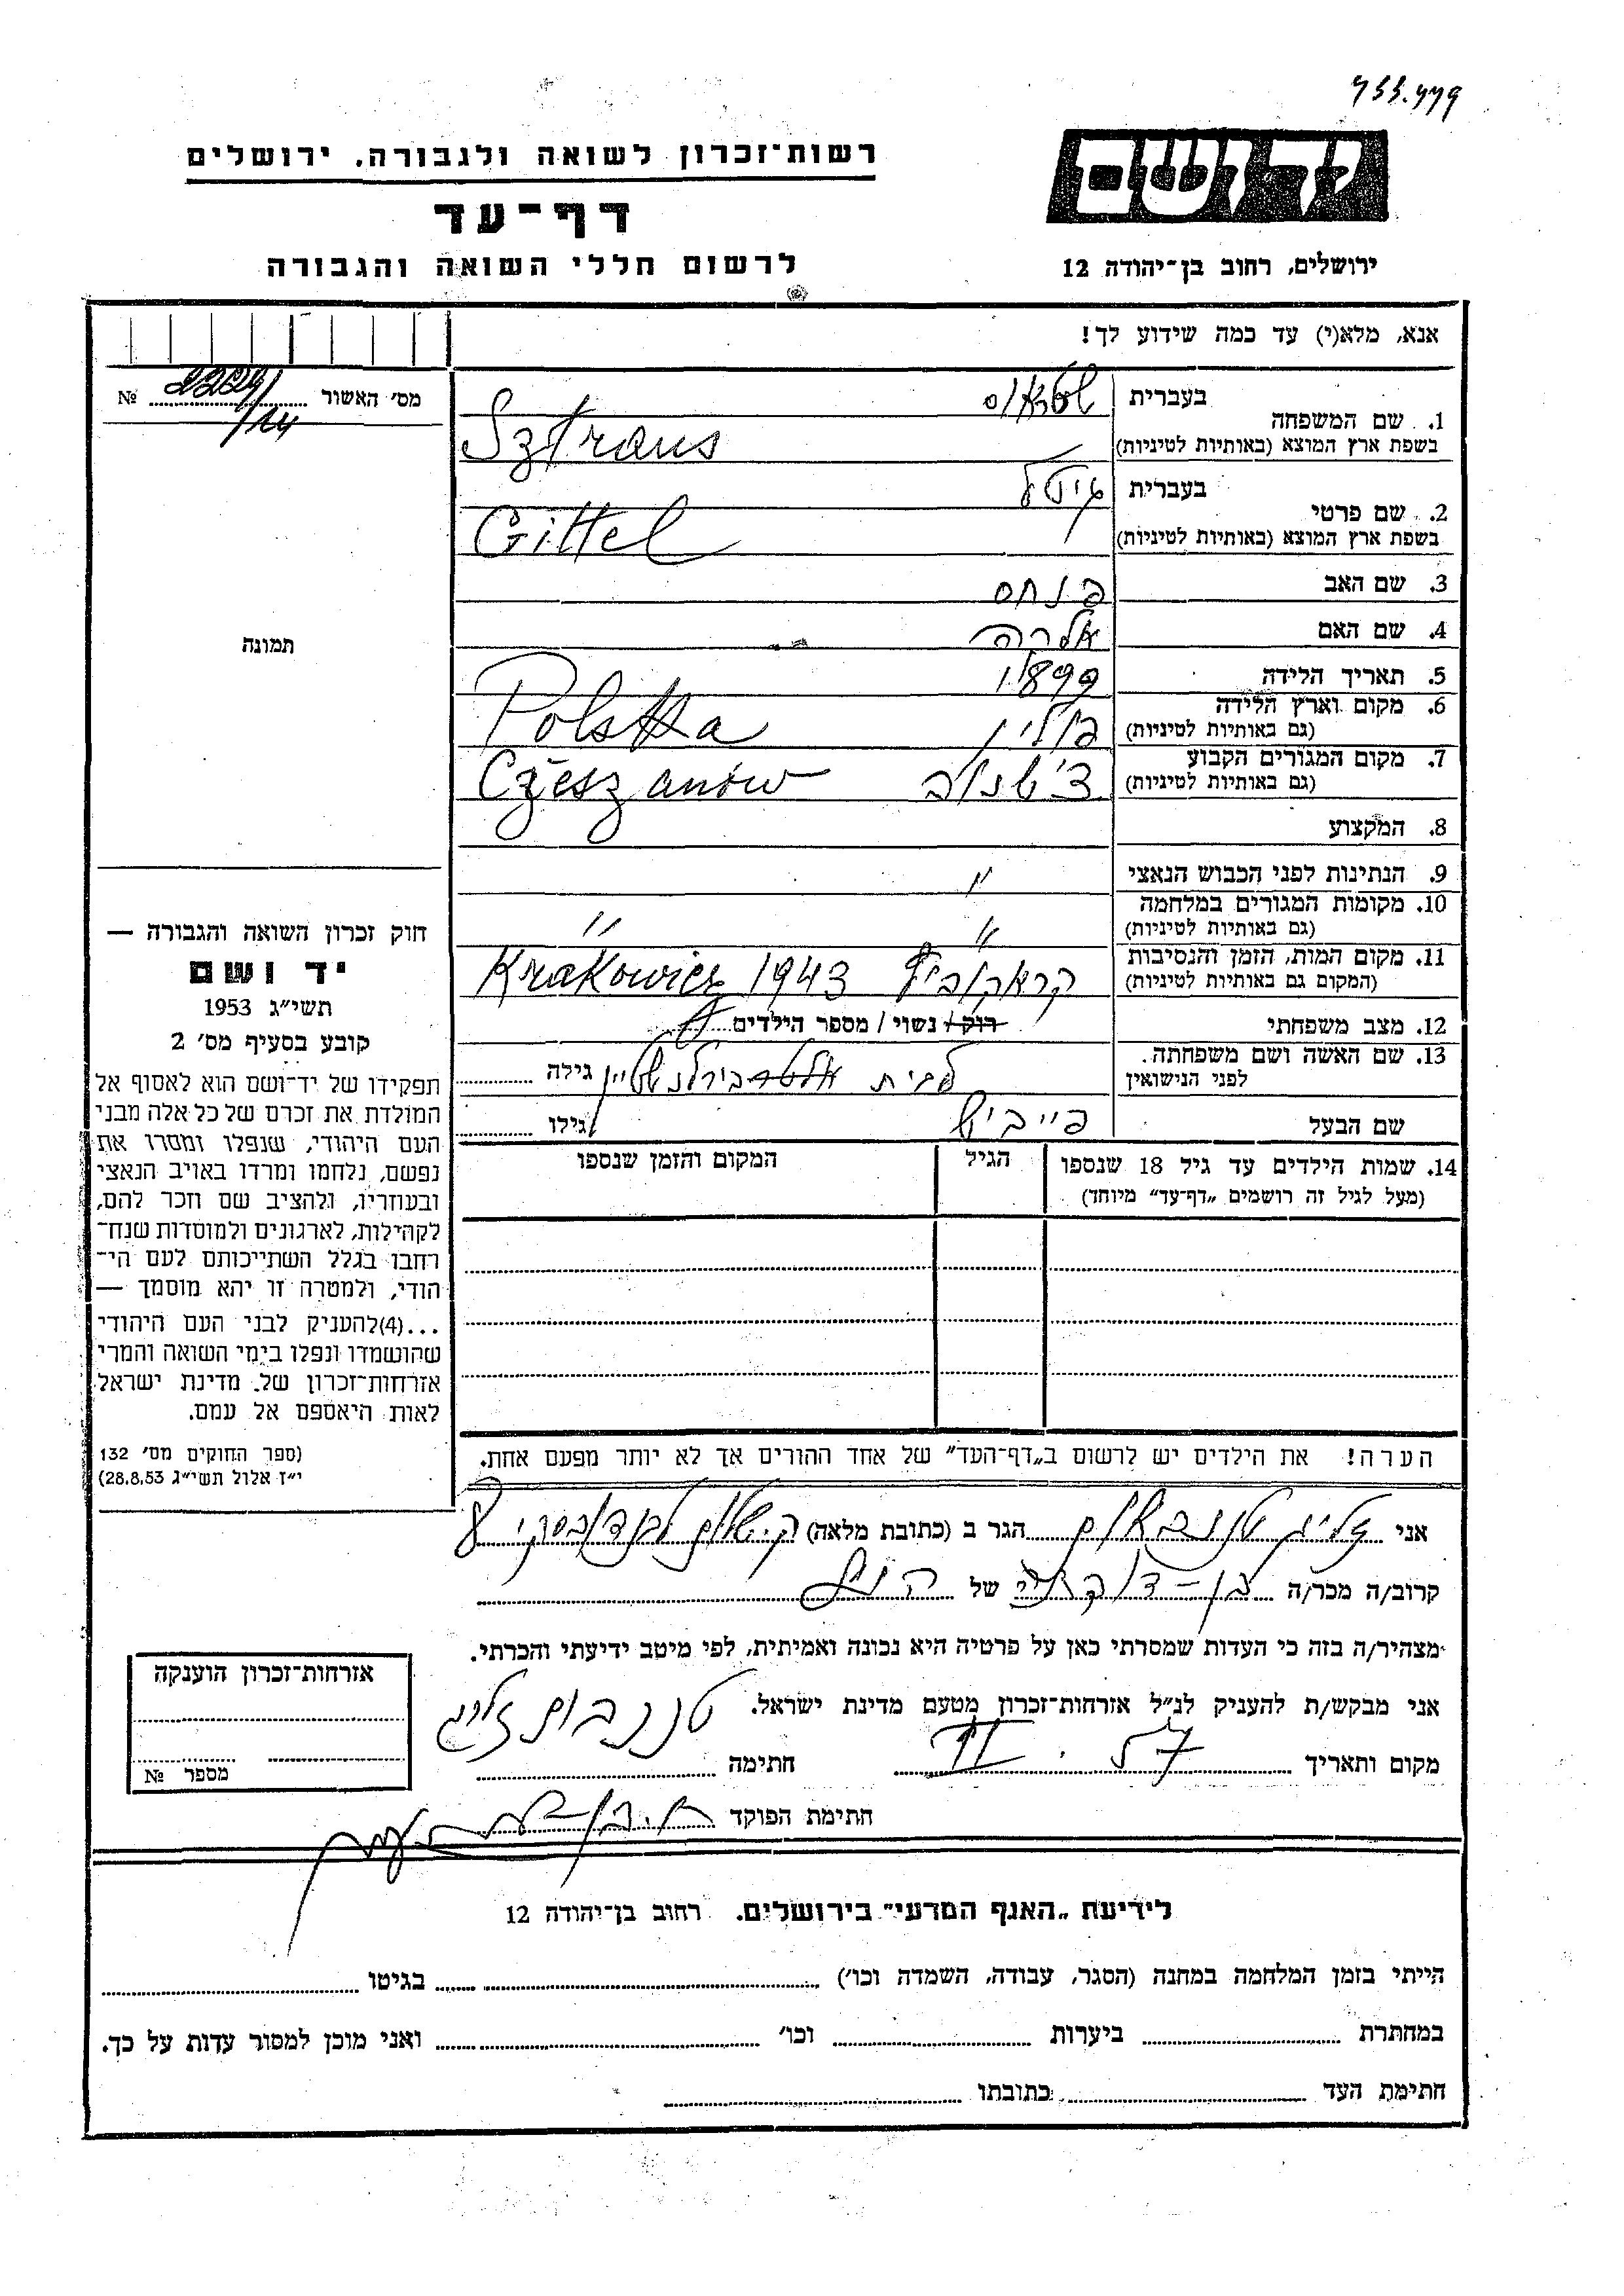 רשות־זכרון לשואה ולגבורה, ירושלים
יד ושם
דף־עד
לרשום חללי השואה והגבורה
ירושלים, רחוב בן־יהודה 12
אנא, מלא(י) עד כמה שידוע לך!
מס׳ האשור № 2229/14
1. שם המשפחה בעברית שטראוס
בשפת ארץ המוצא (באותיות לטיניות) Sztraus
2. שם פרטי בעברית גיטל
בשפת ארץ המוצא (באותיות לטיניות) Gittel
3. שם האב פנחס
4. שם האם
5. תאריך הלידה 1899
6. מקום וארץ הלידה
(גם באותיות לטיניות) פולין Polska
7. מקום המגורים הקבוע
(גם באותיות לטיניות) צ׳שנוב Czeszanów
8. המקצוע
9. הנתינות לפני הכבוש הנאצי "
10. מקומות המגורים במלחמה
(גם באותיות לטיניות) " "
11. מקום המות, הזמן והנסיבות
(המקום גם באותיות לטיניות) קראקוביץ 1943 Krakowiec
12. מצב משפחתי רוק / נשוי / מספר הילדים
13. שם האשה ושם משפחתה
לפני הנישואין לבית גילה
שם הבעל פייביש גילו
14. שמות הילדים עד גיל 18 שנספו
(מעל לגיל זה רושמים „דף־עד״ מיוחד)
הגיל
המקום והזמן שנספו
תמונה
חוק זכרון השואה והגבורה —
יד ושם
תשי״ג 1953
קובע בסעיף מס׳ 2
תפקידו של יד־ושם הוא לאסוף אל
המולדת את זכרם של כל אלה מבני
העם היהודי, שנפלו ומסרו את
נפשם, נלחמו ומרדו באויב הנאצי
ובעוזריו, ולהציב שם וזכר להם,
לקהילות, לארגונים ולמוסדות שנח־
רחבו בגלל השתייכותם לעם הי־
הודי, ולמטרה זו יהא מוסמך —
...(4)להעניק לבני העם היהודי
שהושמדו ונפלו בימי השואה והמרי
אזרחות־זכרון של מדינת ישראל
לאות היאספם אל עמם.
(ספר החוקים מס׳ 132
י״ז אלול תשי״ג 28.8.53)
הערה! את הילדים יש לרשום ב„דף־העד״ של אחד ההורים אך לא יותר מפעם אחת.
אני זליג טננבאום הגר ב (כתובת מלאה)
קרוב/ה מכר/ה בן־דוד של
מצהיר/ה בזה כי העדות שמסרתי כאן על פרטיה היא נכונה ואמיתית, לפי מיטב ידיעתי והכרתי.
אני מבקש/ת להעניק לנ״ל אזרחות־זכרון מטעם מדינת ישראל.
מקום ותאריך חתימה טננבוים זליג
חתימת הפוקד
אזרחות־זכרון הוענקה
מספר №
לידיעת „האגף המדעי״ בירושלים. רחוב בן־יהודה 12
הייתי בזמן המלחמה במחנה (הסגר, עבודה, השמדה וכו׳) בגיטו
במחתרת ביערות וכו׳ ואני מוכן למסור עדות על כך.
חתימת העד כתובתו